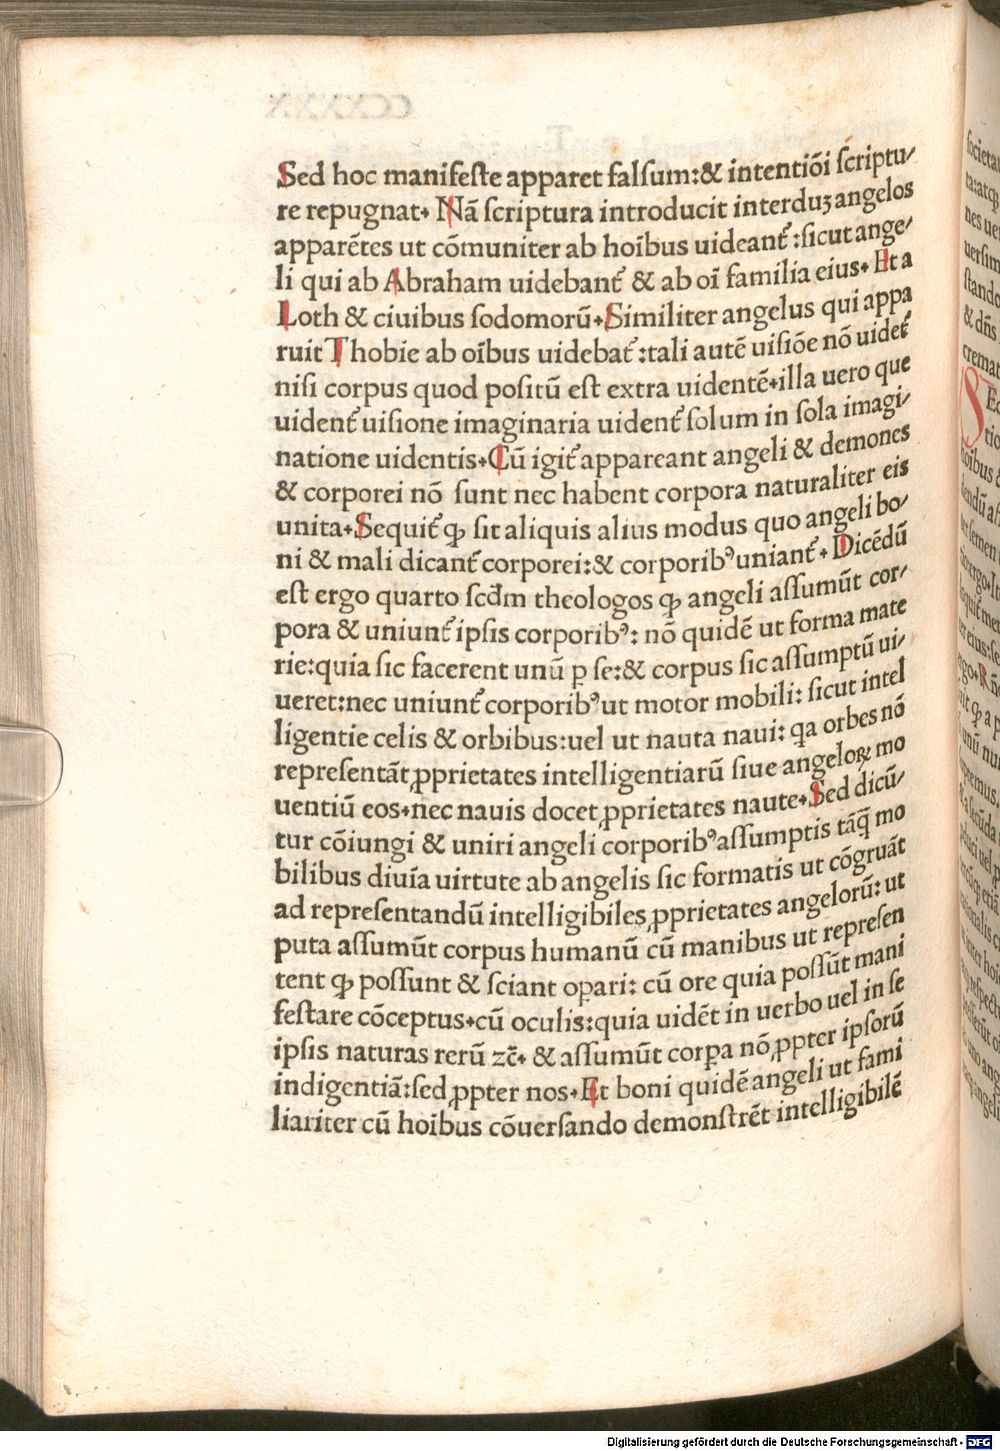 Sed hoc manifeste apparet falsum:& intentiõi scriptu/
re repugnat. Nã scriptura introducit interduʒ angelos
apparẽtes ut cõmuniter ab hoĩbus uideant᷑ :sicut ange/
li qui ab Abraham uidebant᷑ & ab oĩ familia eius. Et a
Loth & ciuibus sodomorũ.Similiter angelus qui appa
ruit Thobie ab oĩbus uidebat᷑ :tali autẽ uisiõe nõ uidet᷑
nisi corpus quod positũ est extra uidentẽ.illa uero que
uident᷑ uisione imaginaria uident᷑ solum in sola imagi/
natione uidentis.Cũ igit᷑ appareant angeli & demones
& corporei nõ sunt nec habent corpora naturaliter eis
unita.Sequit᷑ ꝙ sit aliquis alius modus quo angeli bo/
ni & mali dicant᷑ corporei:& corporibꝰ uniant᷑ . Dicẽdũ
est ergo quarto scd̃m theologos ꝙ angeli assumũt cor/
pora & uniunt᷑ ipsis corporibꝰ: nõ quidẽ ut forma mate
rie:quia sic facerent unũ ꝑ se:& corpus sic assumptũ ui/
ueret:nec uniunt᷑ corporibꝰ ut motor mobili: sicut intel
ligentie celis & orbibus:uel ut nauta naui: qa orbes nõ
representãt ꝓprietates intelligentiarũ siue angeloꝝ mo
uentiũ eos.nec nauis docet ꝓprietates naute.Sed dicũ/
tur cõiungi & uniri angeli corporibꝰ assumptis tãq̃ mo
bilibus diuĩa uirtute ab angelis sic formatis ut cõgruãt
ad representandũ intelligibiles ꝓprietates angelorũ: ut
puta assumũt corpus humanũ cũ manibus ut represen
tent ꝙ possunt & sciant oꝑari: cũ ore quia possũt mani
festare cõceptus.cũ oculis:quia uidẽt in uerbo uel in se
ipsis naturas rerũ zc̃. & assumũt corꝑa nõ ꝓpter ipsorũ
indigentiã:sed ꝓpter nos.Et boni quidẽ angeli ut fami
liariter cũ hoibus cõuersando demonstrẽt intelligibilẽ
Digitalisierung gefördert durch die Deutsche Forschungsgemeinschaft - DFG